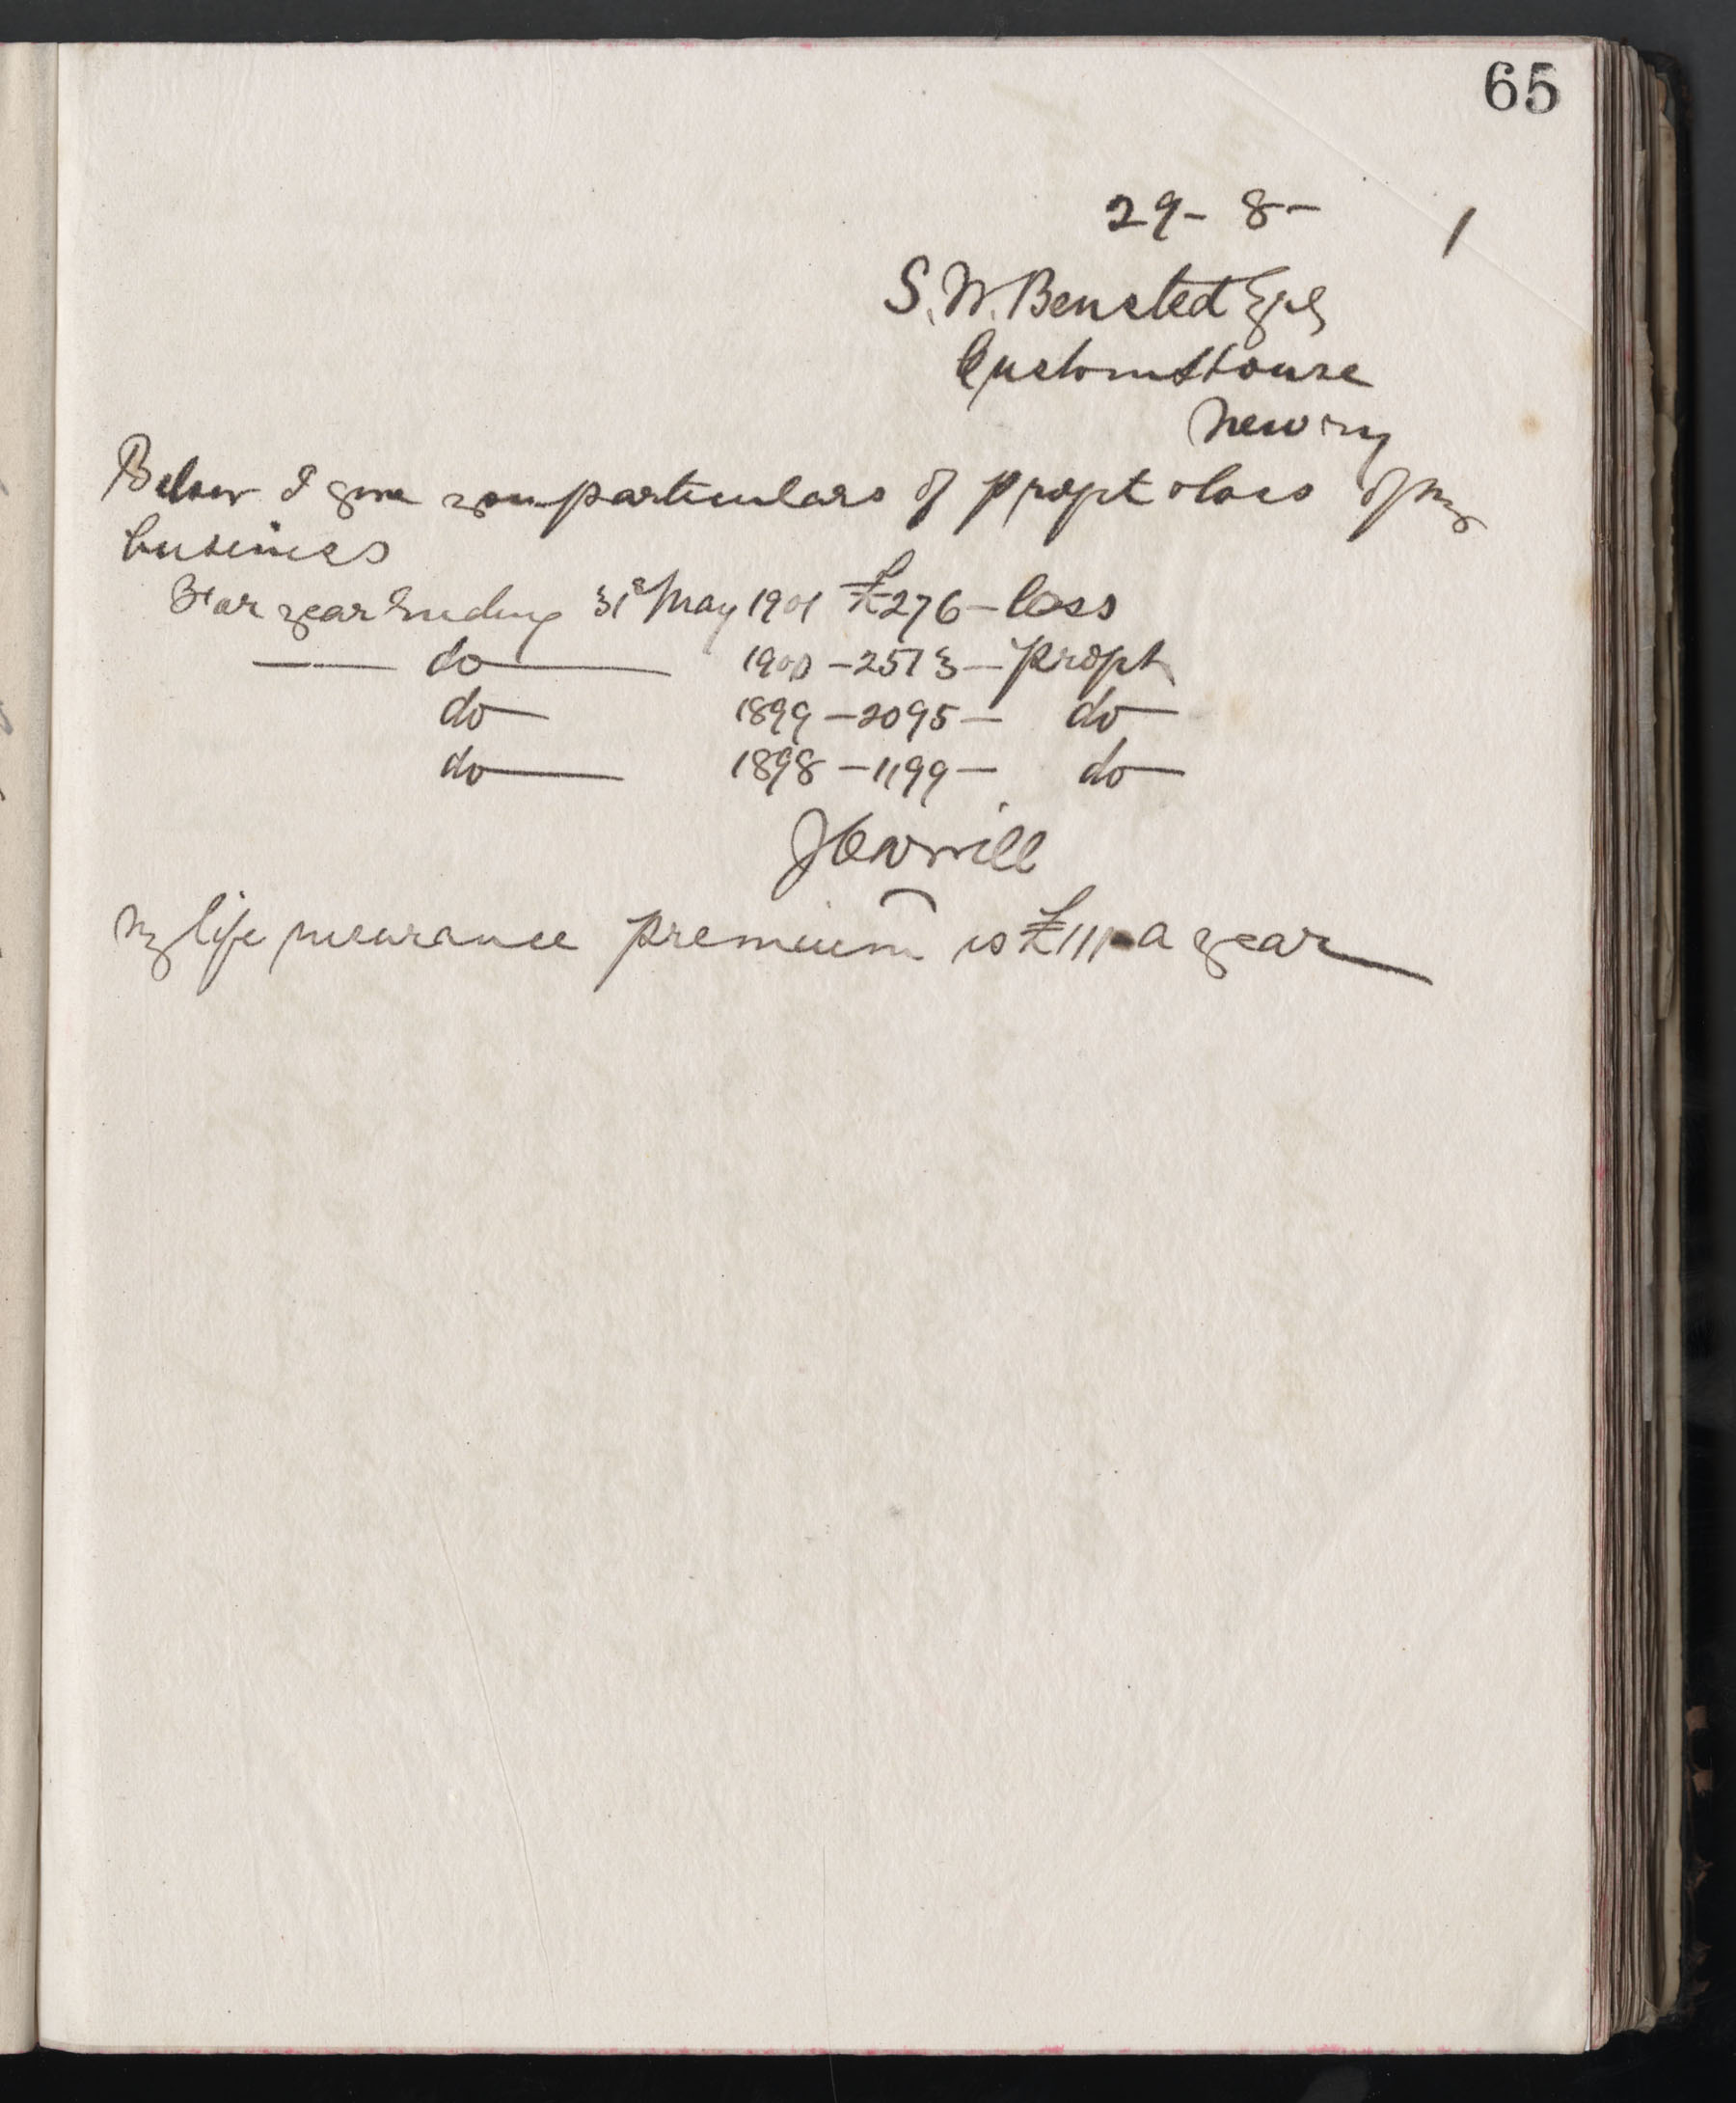 65
29 - 8 - 1
S. W. Bensted Esq
Custom House
Newry
Below I give you particulars of profit & loss of my
business
For year Ending 31st May 1901 £276 - loss
do 1900 - 2573 - profit
do 1899 - 2095 - do
do 1898 - 1199 - do
My life insurance premium is £111 a year